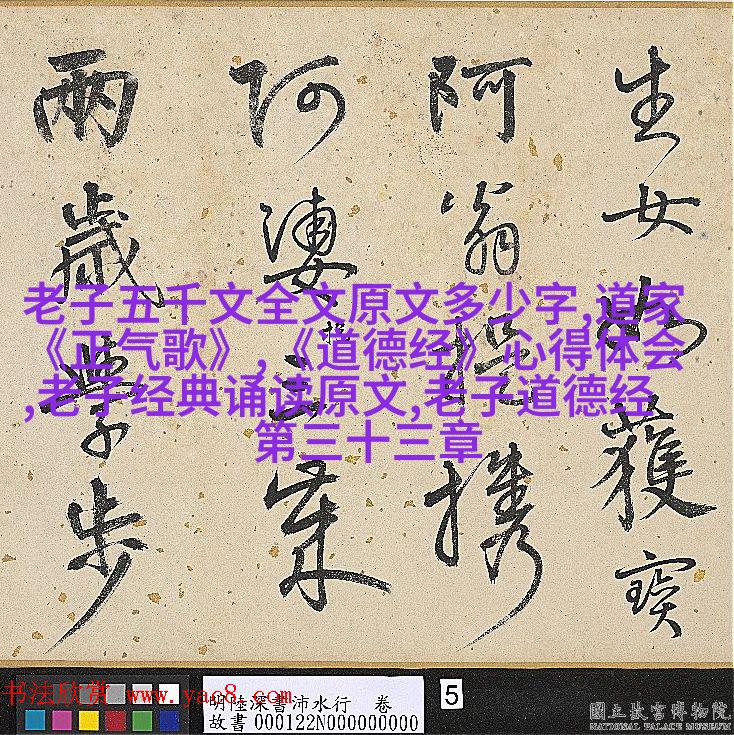 生女如獲寶
阿翁提攜
阿婆
兩歲學步
老子五千文全文原文多少字,道家
《正气歌》,《道德经》心得体会
,老子经典诵读原文,老子道德经
第三十三章
书法欣赏 www.yac8.com
明陸深書沛水行 卷
故書 000122N000000000
5
國立故宮博物院
NATIONAL PALACE MUSEUM